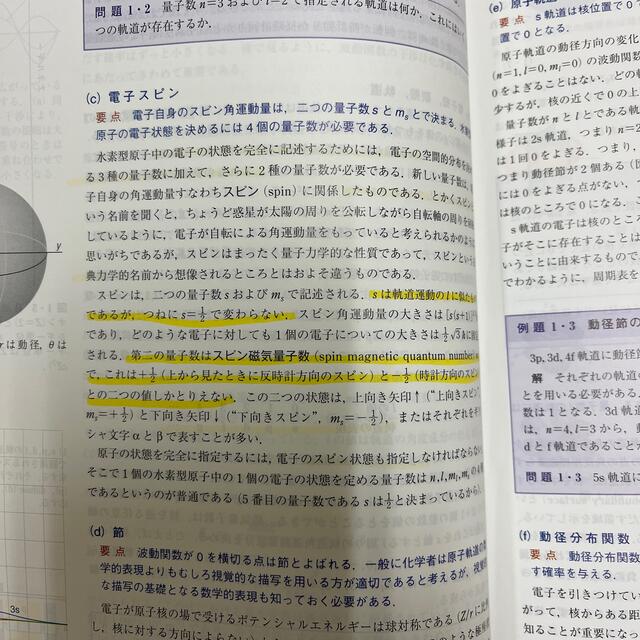 問題 1・2 量子数 n=3 および l=2 で指定される軌道は何か.
つの軌道が存在するか.
(c) 電子スピン
要点 電子自身のスピン角運動量は，二つの量子数 s と ms とで決まる.
原子の電子状態を決めるには 4 個の量子数が必要である.
水素型原子中の電子の状態を完全に記述するためには，電子の空間的分布を
る 3 種の量子数に加えて，さらに 2 種の量子数が必要である. 新しい量子数は，
子自身の角運動量すなわちスピン (spin) に関係したものである. とかくスピンと
いう名前を聞くと，ちょうど惑星が太陽の周りを公転しながら自転軸の周りを
しているように，電子が自転による角運動量をもっていると考えられるかのよう
思いがちであるが，スピンはまったく量子力学的な性質であって，スピンという
典力学的名前から想像されるところとはおよそ違うものである.
スピンは，二つの量子数 s および ms で記述される. s は軌道運動の l に似た
であるが，つねに s=½ で変わらない. スピン角運動量の大きさは
であり，どのような電子に対しても 1 個の電子についての大きさは ½√3ħ に
される. 第二の量子数はスピン磁気量子数 (spin magnetic quantum number)
で，これは +½ (上から見たときに反時計方向のスピン) と −½ (時計方向のスピ
との二つの値しかとりえない. この二つの状態は，上向き矢印 ↑ (“上向きスピン”，
ms=+½) と下向き矢印 ↓ (“下向きスピン”，ms=−½)，またはそれぞれを
シャ文字 α と β で表すことが多い.
原子の状態を完全に指定するには，電子のスピン状態も指定しなければならない.
そこで 1 個の水素型原子中の 1 個の電子の状態を定める量子数は n, l, ml, ms の 4
であるというのが普通である (5 番目の量子数である s は ½ と決まっているから).
(d) 節
要点 波動関数が 0 を横切る点は節とよばれる. 一般に化学者は原子軌道の
学的表現よりもむしろ視覚的な描写を用いる方が適切であると考えるが，
な描写の基礎となる数学的表現も知っておく必要がある.
電子が原子核の場で受けるポテンシャルエネルギーは球対称である
し，核に対する方向によらない
y
r は動径，θ は
3s
(e) 原子軌道
要点 s 軌道は核位置で 0
置で 0 となる.
原子軌道の動径方向の変化
(n=1, l=0, ml=0) の波動関数
0 をよぎることはない.
少するが，核の近くで 0 の上
量子数が n と l である軌
様子は 2s 軌道，つまり n=2
は 1 回 0 をよぎる. つまり，
つまり動径節が 2 個ある
には 0 をよぎる点がない.
は核のところで 0 になる.
s 軌道の電子は核のところ
子がそこに存在することは
いうことに由来するもので
でわかるように，周期表を
例題 1・3 動径節の
3p, 3d, 4f 軌道に動径節
解 それぞれの軌道の
とを用いる必要がある.
数は 1 となる. 3d 軌道
は，n=4, l=3 から，動
d と f 軌道であることが
問題 1・3 5s 軌道に
(f) 動径分布関数
要点 動径分布関数
す確率を与える.
電子を引きつけてい
がって，核からある距
知ることが重要にな